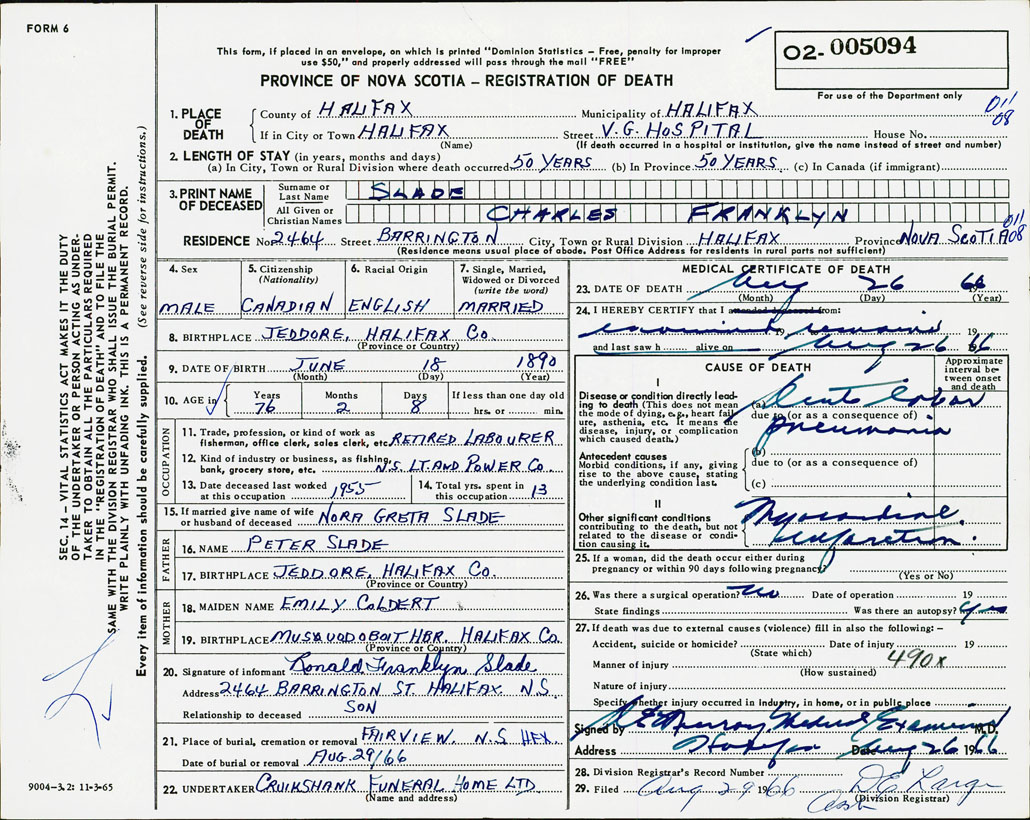 FORM 6
This form, if placed in an envelope, on which is printed "Dominion Statistics – Free, penalty for improper
use $50," and properly addressed will pass through the mail "FREE"
PROVINCE OF NOVA SCOTIA – REGISTRATION OF DEATH
02- 005094
For use of the Department only
011
08
1. PLACE OF DEATH
County of HALIFAX Municipality of HALIFAX
If in City or Town HALIFAX Street V.G. HOSPITAL House No.
(Name) (If death occurred in a hospital or institution, give the name instead of street and number)
2. LENGTH OF STAY (in years, months and days)
(a) In City, Town or Rural Division where death occurred 50 YEARS (b) In Province 50 YEARS (c) In Canada (if immigrant)
3. PRINT NAME OF DECEASED
Surname or Last Name SLADE
All Given or Christian Names CHARLES FRANKLYN
011
08
RESIDENCE No. 2464 Street BARRINGTON City, Town or Rural Division HALIFAX Province NOVA SCOTIA
(Residence means usual place of abode. Post Office Address for residents in rural parts not sufficient)
4. Sex
MALE
5. Citizenship
(Nationality)
CANADIAN
6. Racial Origin
ENGLISH
7. Single, Married,
Widowed or Divorced
(write the word)
MARRIED
8. BIRTHPLACE JEDDORE, HALIFAX Co.
(Province or Country)
9. DATE OF BIRTH JUNE 18 1890
(Month) (Day) (Year)
10. AGE in
Years Months Days If less than one day old
76 2 8 hrs. or min.
OCCUPATION
11. Trade, profession, or kind of work as
fisherman, office clerk, sales clerk, etc. RETIRED LABOURER
12. Kind of industry or business, as fishing,
bank, grocery store, etc. N.S. LT. AND POWER Co.
13. Date deceased last worked
at this occupation 1955
14. Total yrs. spent in
this occupation 13
15. If married give name of wife
or husband of deceased NORA GRETA SLADE
FATHER
16. NAME PETER SLADE
17. BIRTHPLACE JEDDORE, HALIFAX Co.
(Province or Country)
MOTHER
18. MAIDEN NAME EMILY COLDERT
19. BIRTHPLACE MUSQUODOBOIT HBR. HALIFAX Co.
(Province or Country)
20. Signature of informant Ronald Franklyn Slade
Address 2464 BARRINGTON ST. HALIFAX N.S.
Relationship to deceased SON
21. Place of burial, cremation or removal FAIRVIEW. N.S HFX.
Date of burial or removal AUG. 29/66
22. UNDERTAKER CRUIKSHANK FUNERAL HOME LTD
(Name and address)
MEDICAL CERTIFICATE OF DEATH
23. DATE OF DEATH Aug 26 66
(Month) (Day) (Year)
24. I HEREBY CERTIFY that I attended deceased from:
examined 19 remains 19
and last saw h alive on Aug 26 1966
CAUSE OF DEATH
Approximate
interval be-
tween onset
and death
I
Disease or condition directly lead-
ing to death (This does not mean
the mode of dying, e.g., heart fail-
ure, asthenia, etc. It means the
disease, injury, or complication
which caused death.)
(a) Acute lobar
due to (or as a consequence of)
pneumonia
(b)
Antecedent causes
Morbid conditions, if any, giving
rise to the above cause, stating
the underlying condition last.
due to (or as a consequence of)
(c)
II
Other significant conditions
contributing to the death, but not
related to the disease or condi-
tion causing it.
Myocardial
infarction.
25. If a woman, did the death occur either during
pregnancy or within 90 days following pregnancy?
(Yes or No)
26. Was there a surgical operation? No Date of operation 19
State findings Was there an autopsy? Yes
27. If death was due to external causes (violence) fill in also the following: –
Accident, suicide or homicide? Date of injury 19
(State which)
490x
Manner of injury
(How sustained)
Nature of injury
Specify whether injury occurred in industry, in home, or in public place
Signed by Murray Medical Examiner M.D.
Address Halifax Date Aug 26 1966
28. Division Registrar's Record Number
29. Filed Aug 29 1966 D E Large
(Division Registrar)
SEC. 14 – VITAL STATISTICS ACT MAKES IT THE DUTY
OF THE UNDERTAKER OR PERSON ACTING AS UNDER-
TAKER TO OBTAIN ALL THE PARTICULARS REQUIRED
IN THE "REGISTRATION OF DEATH" AND TO FILE THE
SAME WITH THE DIVISION REGISTRAR WHO SHALL ISSUE THE BURIAL PERMIT.
WRITE PLAINLY WITH UNFADING INK. THIS IS A PERMANENT RECORD.
Every item of information should be carefully supplied. (See reverse side for instructions.)
9004-3.2: 11-3-65